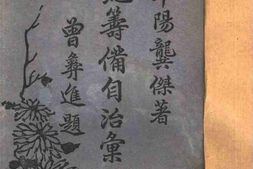 陽龔傑著
籌備自治彙
曾彝進題